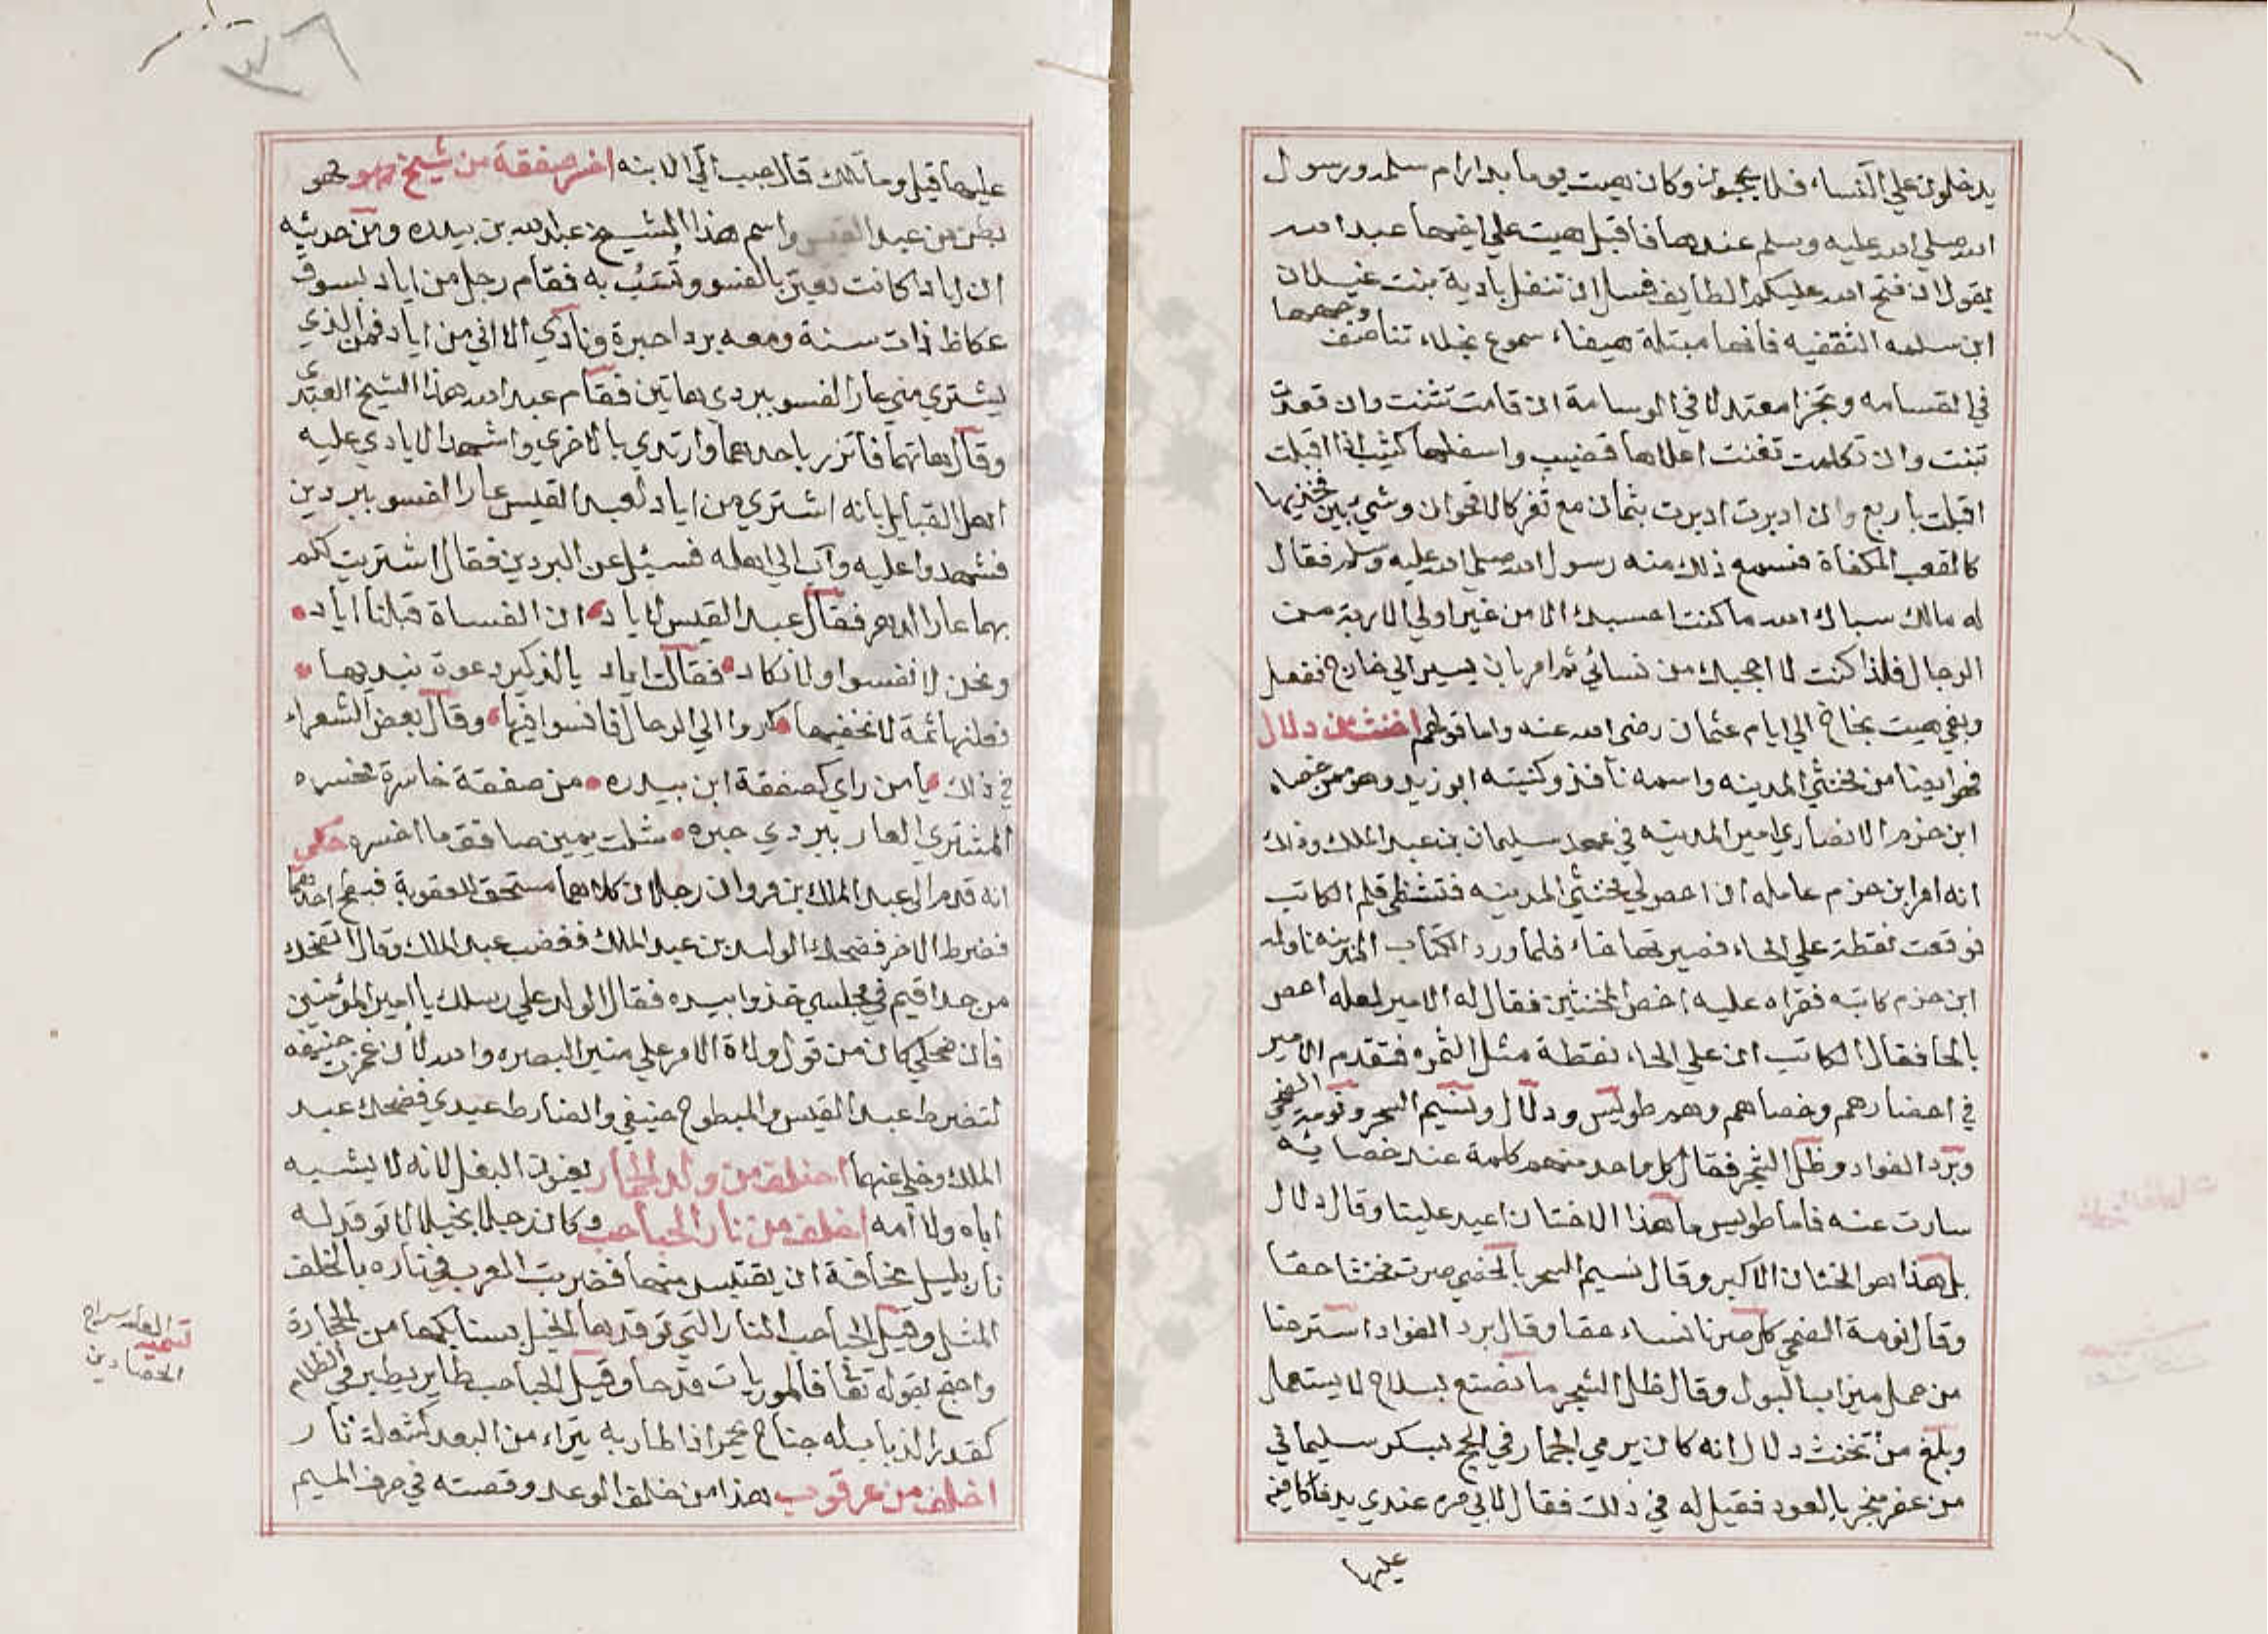 يدخلون على النساء فلا يحجبون وكان هيت يوما بدار ام سلمه ورسول
الله صلي الله عليه وسلم عندها فاقبل هيت علي اخيها عبد الله
يقول ان فتح الله عليكم الطايف فسل ان تنفل بادية بنت غيلان
ابن سلمه الثقفيه فانها مبتلة هيفاء سموع نجلاء تناصف وجهها
في القسامه وتجزا معتدلا في الوسامة ان قامت تثنت وان قعدت
تبنت وان تكلمت تغنت اعلاها قضيب واسفلها كثيب اذا اقبلت
اقبلت باربع وان ادبرت ادبرت بثمان مع ثغر كالاقحوان وشي بين فخذيها
كالقعب المكفاة فسمع ذلك منه رسول الله صلي الله عليه وسلم فقال
له مالك سباك الله ما كنت احسبك الا من غير اولي الاربة من
الرجال فلذا كنت لا احجبك من نسائي ثم امر بان يسير الي خاخ ففعل
وبقي هيت بخاخ الي ايام عثمان رضي الله عنه واما قولهم اخنث من دلال
فهو ايضا من مخنثي المدينه واسمه نافذ وكنيته ابو زيد وهو ممن خصاه
ابن حزم الانصاري امير المدينه في عهد سليمان بن عبد الملك وذلك
انه امر ابن حزم عامله ان احص لي مخنثي المدينه فتشظي قلم الكاتب
فوقعت نقطة علي الحاء فصيرتها خاء فلما ورد الكتاب المدينه ناوله
ابن حزم كاتبه فقراه عليه اخص المخنثين فقال له الامير لعله احص
بالحا فقال الكاتب ان علي الحاء نقطة مثل التمره فتقدم الامير
في احضارهم وخصاهم وهم طويس ودلال ونسيم السحر ونومة الضحي
وبرد الفواد وظل الشجر فقال كل واحد منهم كلمة عند خصائه
سارت عنه فاما طويس ما هذا الا ختان اعيد علينا وقال دلال
بل هذا هو الختان الاكبر وقال نسيم السحر بالخصي صرت مخنثا حقا
وقال نومة الضحي كل صرنا نساء حقا وقال برد الفواد استرحنا
من حمل ميزاب البول وقال ظل الشجر ما نصنع بسلاح لا يستعمل
وبلغ من تخنث دلال انه كان يرمي الجمار في الحج بسكر سليماني
مزعفر مبخر بالعود فقيل له في ذلك فقال لابي مره عندي يد فاكافيه
عليها
عليها قيل وما تلك قال حبب الي الابنه اخسر صفقة من شيخ مهو مهو
بطن من عبد القيس واسم هذا الشيخ عبد الله بن بيدره ومن حديثه
ان اياد كانت تعير بالفسو وتسب به فقام رجل من اياد بسوق
عكاظ ذات سنة ومعه بردا حبرة ونادي الا اني من اياد فمن الذي
يشتري مني عار الفسو ببردي هاتين فقام عبد الله هذا الشيخ العبدي
وقال هاتهما فاتزر باحدهما وارتدي بالاخري واشهد الايادي عليه
اهل القبايل بانه اشتري من اياد لعبد القيس عار الفسو ببردين
فشهدوا عليه وآب الي اهله فسئل عن البردين فقال اشتريت لكم
بهما عار الدهر فقال عبد القيس لاياد ان الفساة قبلنا اياد
ونحن لا نفسوا ولا نكاد فقالت اياد يالذكير دعوة نبديها
نعلنها ثمة لا نخفيها كروا الي الرحال فافسوا فيها وقال بعض الشعراء
في ذلك يا من راي كصفقة ابن بيدره من صفقة خاسرة مخسره
المشتري العار ببردي حبره شلت يمين صافق ما اخسره حكي
انه قدم الي عبد الملك بن مروان رجلان كلاهما مستحق العقوبة فبطح احدهما
فضرط الاخر فضحك الوليد بن عبد الملك فغضب عبد الملك وقال اتضحك
من حد اقيم في مجلسي خذوا بيده فقال الوليد علي رسلك يا امير المؤمنين
فان ضحكي كان من قول ولاة الامر علي منبر البصره والله لان غمزت حنيفه
لتضرط عبد القيس والمبطوح حنيفي والضارط عبدي فضحك عبد
الملك وخلي عنهما اخلف من ولد الحمار يعنون البغل لانه لا يشبه
اباه ولا امه اخلف من نار الحباحب وكان رجلا بخيلا لا توقد له
نار بليل مخافة ان يقتبس منها فضربت العرب في ناره بالخلف
المثل وقيل الحباحب النار التي توقدها الخيل بسنابكها من الحجارة
واحتج بقوله تعا فالموريات قدحا وقيل الحباحب طاير يطير في الظلام
كقدر الذباب له جناح يحمر اذا طار به يتراء من البعد كشعلة نار
اخلف من عرقوب هذا من خلف الوعد وقصته في حرف الميم